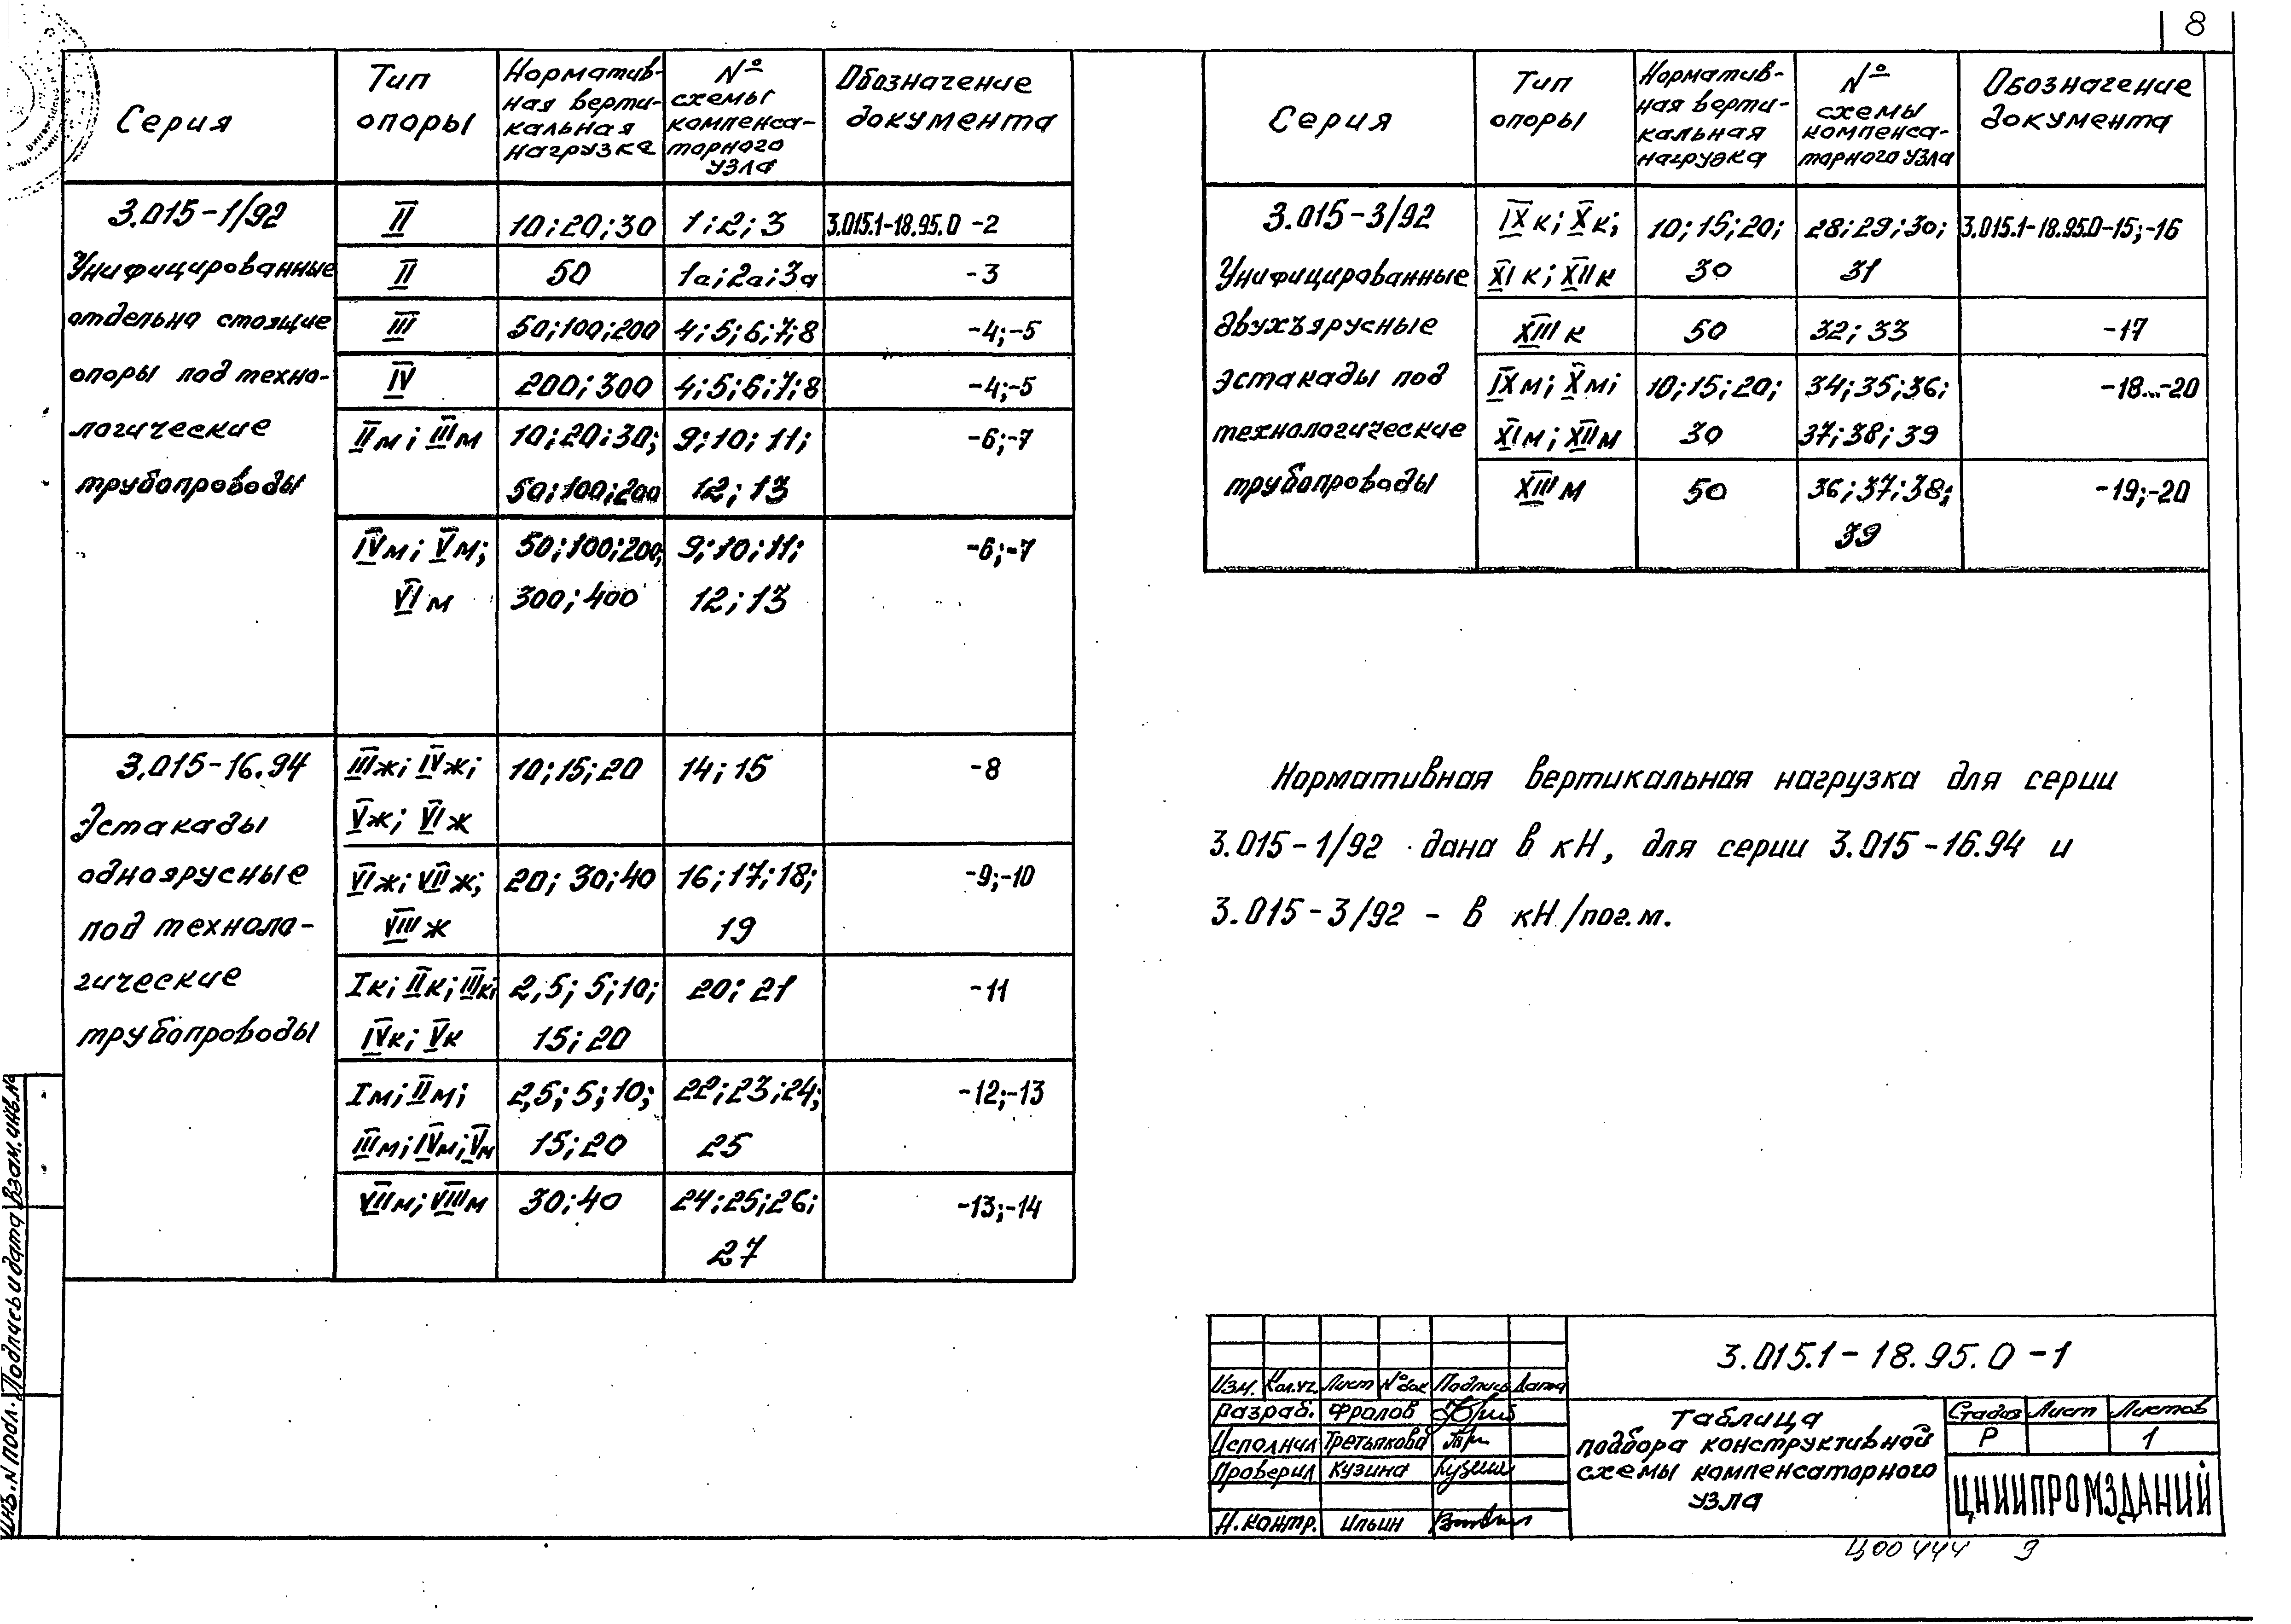 8
Серия
Тип
опоры
Норматив-
ная верти-
кальная
нагрузка
№
схемы
компенса-
торного
узла
Обозначение
документа
3.015-1/92
Унифицированные
отдельно стоящие
опоры под техно-
логические
трубопроводы
II 10;20;30 1;2;3 3.015.1-18.95.0 -2
II 50 1а;2а;3а -3
III 50;100;200 4;5;6;7;8 -4;-5
IV 200;300 4;5;6;7;8 -4;-5
IIм; IIIм 10;20;30; 9;10;11; -6;-7
50;100;200 12;13
IVм; Vм; 50;100;200; 9;10;11; -6;-7
VIм 300;400 12;13
3.015-16.94
Эстакады
одноярусные
под техноло-
гические
трубопроводы
IIIж; IVж; 10;15;20 14;15 -8
Vж; VIж
VIж; VIIж; 20;30;40 16;17;18; -9;-10
VIIIж 19
Iк; IIк; IIIк; 2,5; 5;10; 20;21 -11
IVк; Vк 15;20
Iм; IIм; 2,5; 5;10; 22;23;24; -12;-13
IIIм; IVм; Vм 15;20 25
VIIм; VIIIм 30;40 24;25;26; -13;-14
27
Серия
Тип
опоры
Норматив-
ная верти-
кальная
нагрузка
№
схемы
компенса-
торного узла
Обозначение
документа
3.015-3/92
Унифицированные
двухъярусные
эстакады под
технологические
трубопроводы
IXк; Xк; 10;15;20; 28;29;30; 3.015.1-18.95.0-15;-16
XIк; XIIк 30 31
XIIIк 50 32;33 -17
IXм; Xм; 10;15;20; 34;35;36; -18...-20
XIм; XIIм 30 37;38;39
XIIIм 50 36;37;38; -19;-20
39
Нормативная вертикальная нагрузка для серии
3.015-1/92 дана в кН, для серии 3.015-16.94 и
3.015-3/92 - в кН/пог.м.
3.015.1-18.95.0-1
Изм. Кол.уч. Лист №док Подпись Дата
Разраб. Фролов
Исполнил Третьякова
Проверил Кузина
Н.контр. Ильин
Таблица
подбора конструктивной
схемы компенсаторного
узла
Стадия Лист Листов
Р 1
ЦНИИПРОМЗДАНИЙ
Ц00444 9
Инв.N подл. Подпись и дата Взам.инв.N